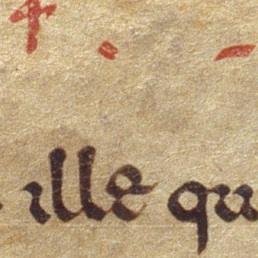 ille qu